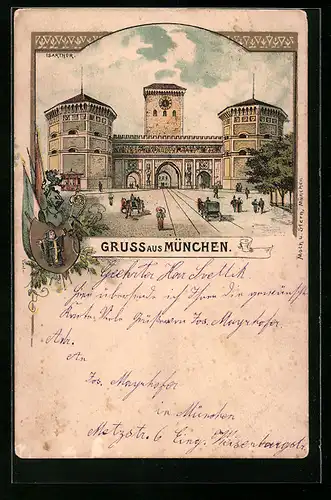 ISARTHOR.
GRUSS AUS MÜNCHEN.
Moch u. Stern, München.
Geehrter Herr
Hier übersende ich Ihnen die gewünschte
Karte. Viele Grüße von Jos. Mayrhofer.
Adr.
An
Jos. Mayrhofer
in München
Metzstr. 6 Eing. Weißenburgstr.